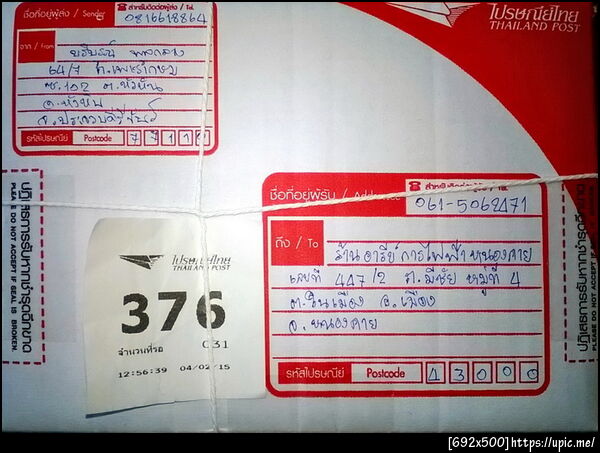 ชื่อที่อยู่ผู้ส่ง / Sender
☎ สำหรับติดต่อผู้ส่ง / Tel.
0816618864
จาก / From
64/7 ถ.เพชรเกษม
ซ.102 ต.หัวหิน
อ.หัวหิน
จ.ประจวบคีรีขันธ์
รหัสไปรษณีย์ Postcode 77110
ไปรษณีย์ไทย
THAILAND POST
ปฏิเสธการรับหากชำรุดฉีกขาด
PLEASE DO NOT ACCEPT IF SEAL IS BROKEN.
ไปรษณีย์ไทย
THAILAND POST
376
จำนวนที่รอ 031
12:56:39 04/02/15
ชื่อที่อยู่ผู้รับ / Addressee
061-5062471
ถึง / To
ร้าน อารีย์ การไฟฟ้า หนองคาย
เลขที่ 447/2 ถ.มีชัย หมู่ที่ 4
ต.ในเมือง อ.เมือง
จ.หนองคาย
รหัสไปรษณีย์ Postcode 43000
ปฏิเสธการรับหากชำรุดฉีกขาด
PLEASE DO NOT ACCEPT
[692x500]https://upic.me/